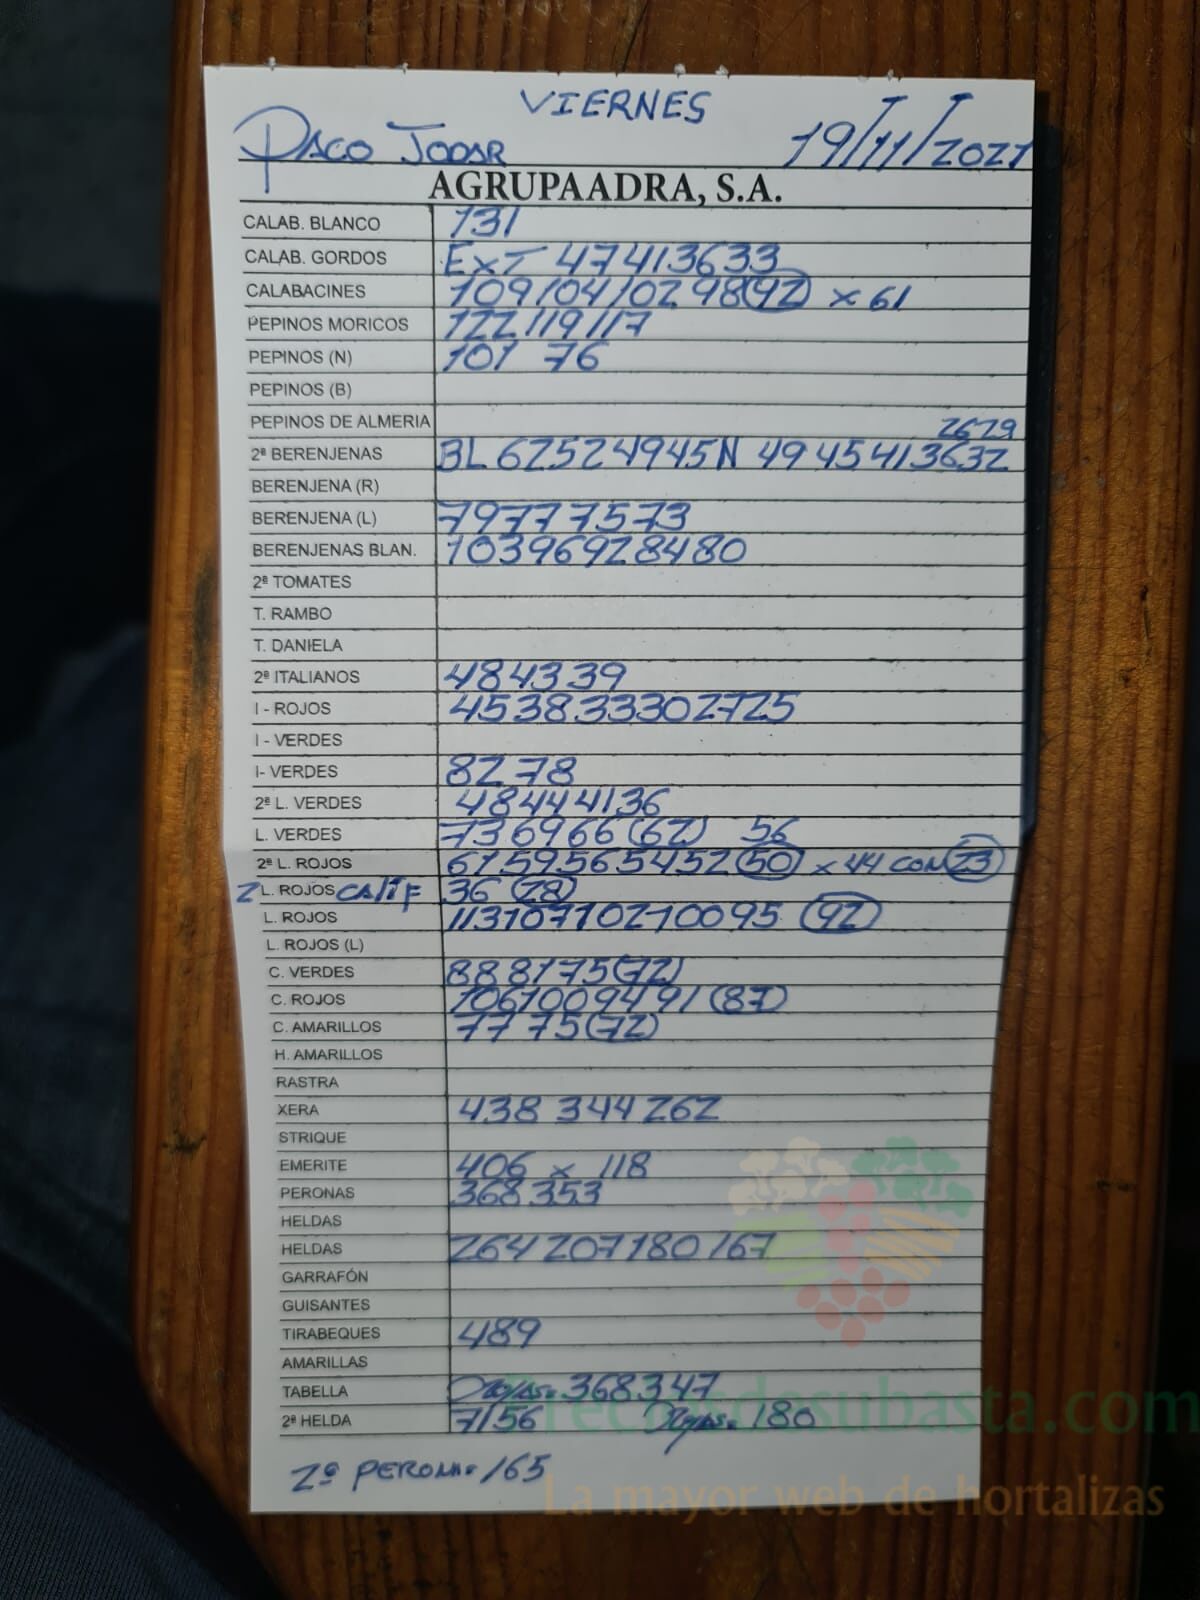 VIERNES
PACO JODAR 19/11/2021
AGRUPAADRA, S.A.
CALAB. BLANCO 131
CALAB. GORDOS EXT 47413633
CALABACINES 109/04/02 98 (92) x 61
PEPINOS MORICOS 122/119/117
PEPINOS (N) 101 76
PEPINOS (B)
PEPINOS DE ALMERIA
2629
2ª BERENJENAS BL 62524945N 4945413632
BERENJENA (R)
BERENJENA (L) 79777573
BERENJENAS BLAN. 10396928480
2ª TOMATES
T. RAMBO
T. DANIELA
2ª ITALIANOS 484339
I - ROJOS 45383333302725
I - VERDES
I- VERDES 8278
2ª L. VERDES 48444136
L. VERDES 736966 (62) 56
2ª L. ROJOS 6759565452 (50) x 44 CON (23)
2 L. ROJOS CALIF 36 (28)
L. ROJOS 11310710210095 (92)
L. ROJOS (L)
C. VERDES 888175 (72)
C. ROJOS 1061009491 (87)
C. AMARILLOS 7775 (72)
H. AMARILLOS
RASTRA
XERA 438 344 262
STRIQUE
EMERITE 406 x 118
PERONAS 368353
HELDAS
HELDAS 264 207 180 167
GARRAFÓN
GUISANTES
TIRABEQUES 489
AMARILLAS
TABELLA 368347
2ª HELDA 7156 180
2ª PERONA = 165
subasta.com
La mayor web de hortalizas